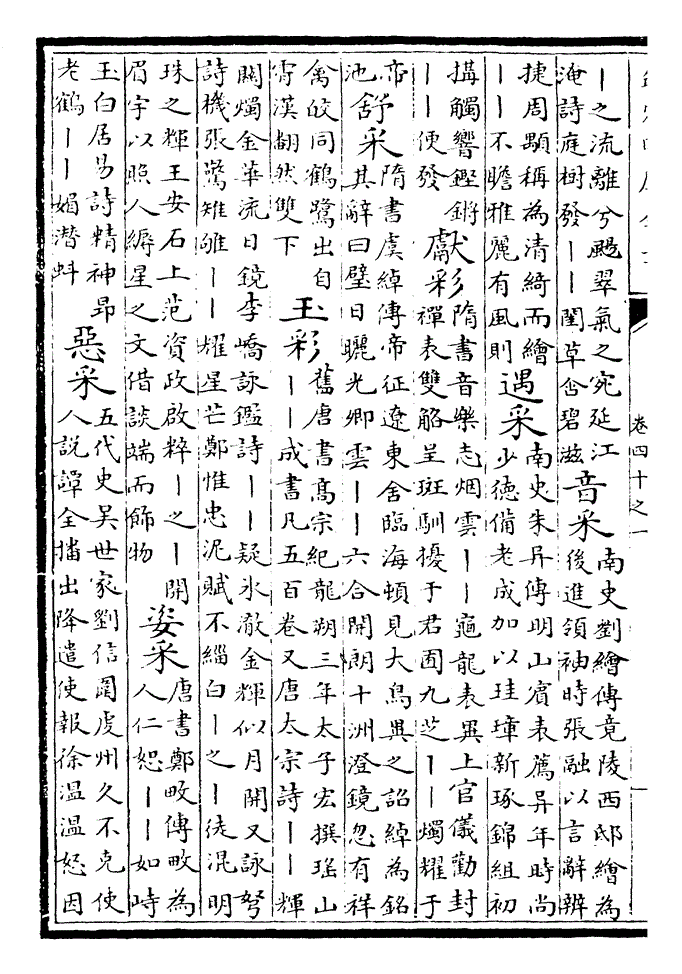 卷四十之一
丨之流離兮颺翠氣之宛延江
淹詩庭樹發丨丨閨草含碧滋
音采
南史劉繪傳竟陵西邸繪為
後進領袖時張融以言辭辨
捷周顒稱為清綺而繪
丨丨不贍雅麗有風則
遇采
南史朱异傳明山賓表薦异年時尚
少德備老成加以珪璋新琢錦組初
搆觸響鏗鏘
丨丨便發
獻彩
隋書音樂志烟雲丨丨龜龍表異上官儀勸封
禪表雙觡呈斑馴擾于君囿九芝丨丨燭耀于
帝
池
舒采
隋書虞綽傳帝征遼東舍臨海頓見大鳥異之詔綽為銘
其辭曰璧日曬光卿雲丨丨六合開朗十洲澄鏡忽有祥
禽皎同鶴鷺出自
霄漢翻然雙下
玉彩
舊唐書高宗紀龍朔三年太子宏撰瑤山
丨丨成書凡五百卷又唐太宗詩丨丨輝
關燭金華流日鏡李嶠詠鑑詩丨丨疑氷澈金輝似月開又詠弩
詩機張驚雉雊丨丨耀星芒鄭惟忠泥賦不緇白丨之丨徒混明
珠之輝王安石上范資政啟粹丨之丨開
眉宇以照人縟星之文借談端而飾物
姿采
唐書鄭畋傳畋為
人仁恕丨丨如峙
玉白居易詩精神昂
老鶴丨丨媚潛蚪
惡采
五代史吳世家劉信圍虔州久不克使
人説譚全播出降遣使報徐溫溫怒因